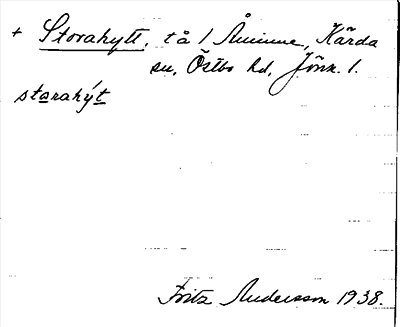 + Storahytt, t å 1 Åminne, Kärda
sn, Östbo hd, Jönk. l.
starahýt
Fritz Andersson 1938.